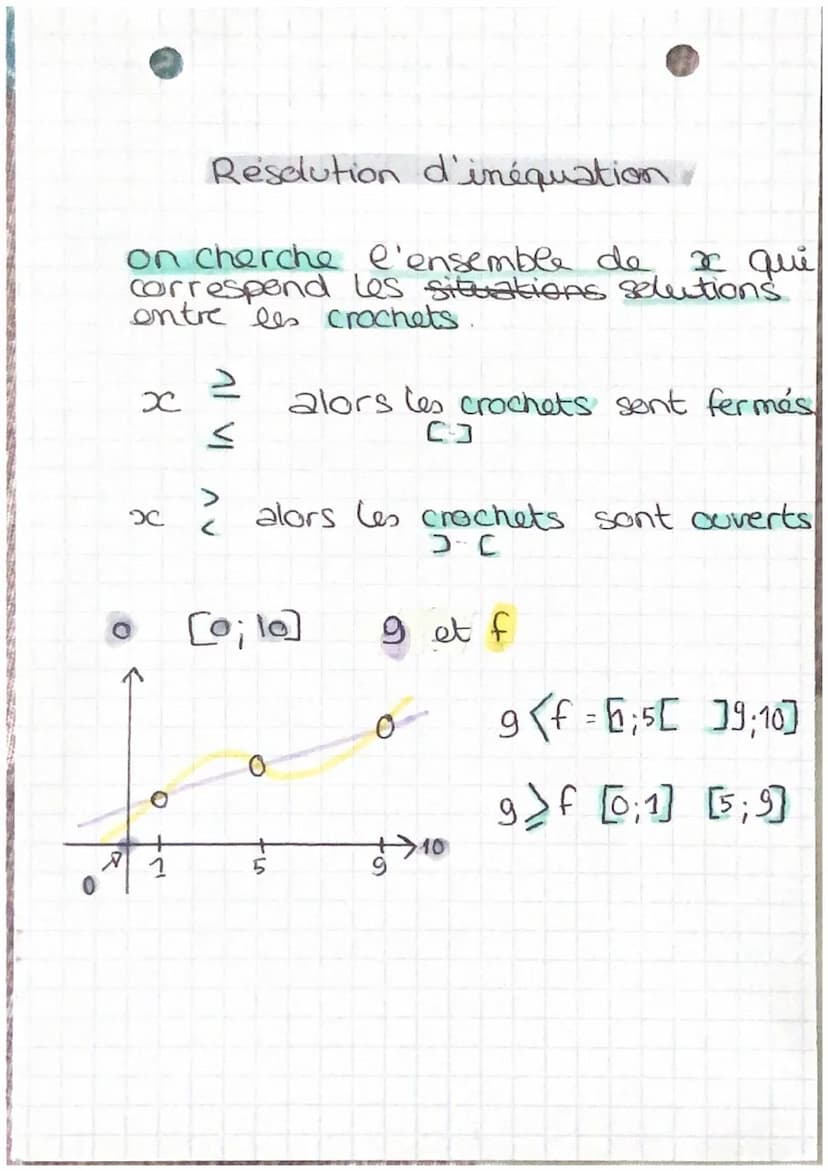 Résolution d'inéquation
on cherche l'ensemble de x qui
correspend les situations solutions
entre les crochets.
x ≥ alors les crochets sont fermés
≤ [-]
x > alors les crochets sont ouverts
< ]-[
o [0;10] g et f
g < f = [1;5[ ]9;10]
g ≥ f [0;1] [5;9]
10
0 1 5 9